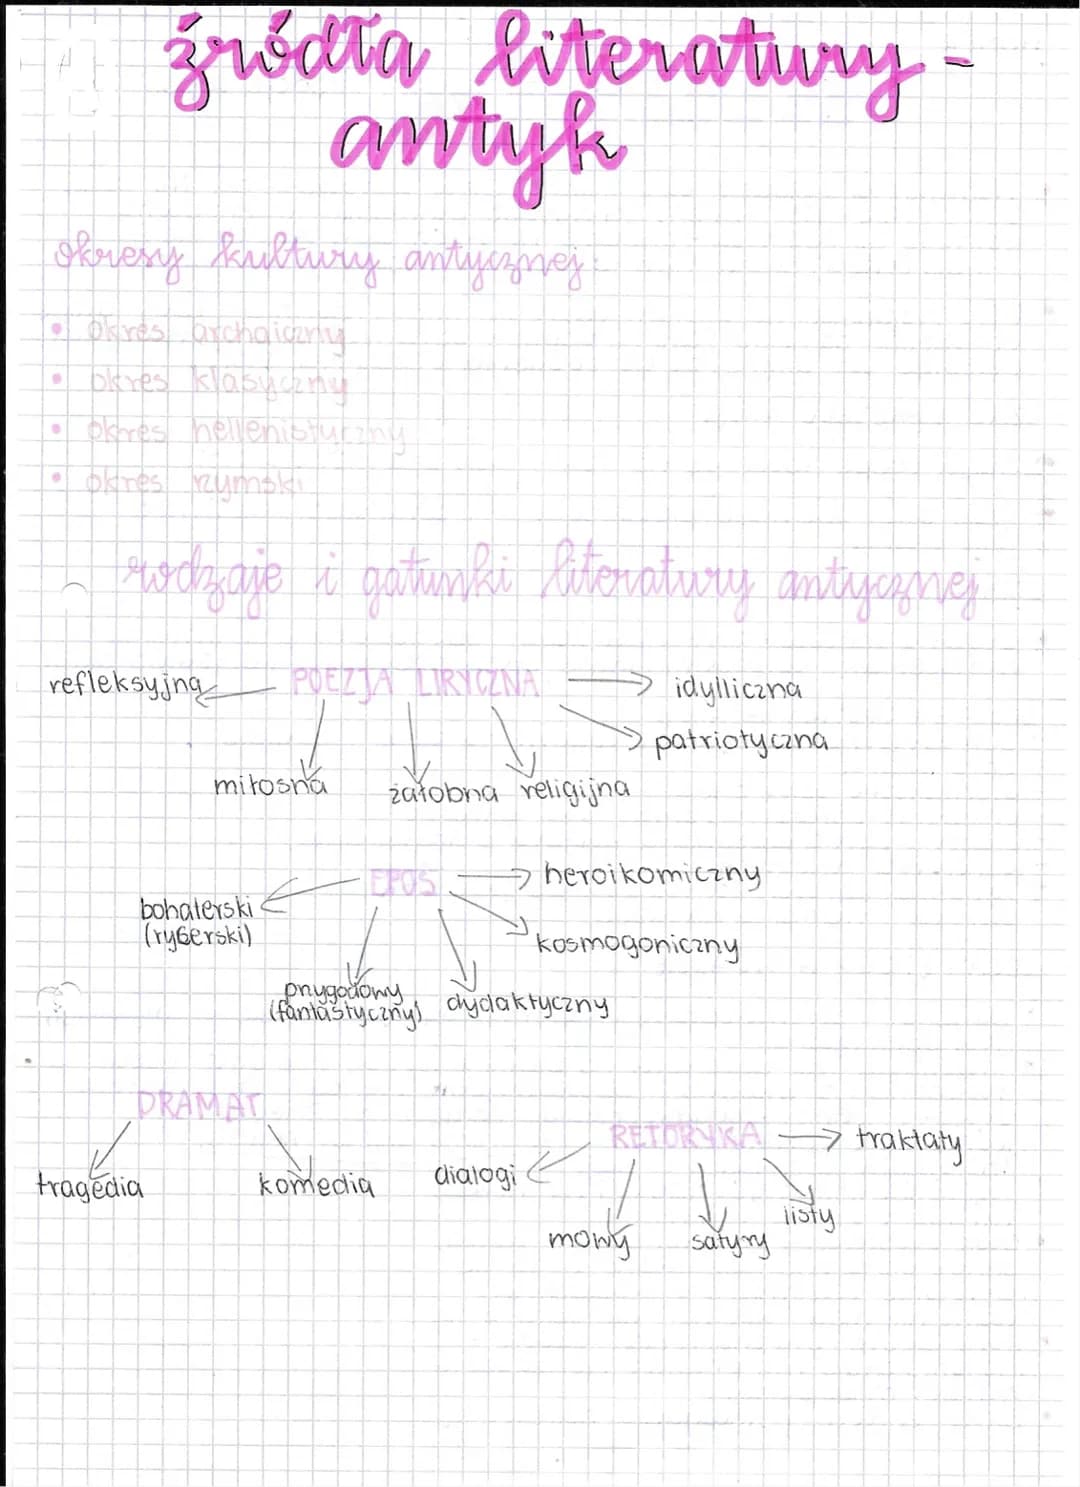 źródła literatury -
antyk
okresy kultury antycznej:
• okres archaiczny
• okres klasyczny
• okres hellenistyczny
• okres rzymski
rodzaje i gatunki literatury antycznej
refleksyjna
POEZJA LIRYCZNA
idylliczna
patriotyczna
miłosna
żałobna
religijna
EPOS
heroikomiczny
bohaterski
(rycerski)
kosmogoniczny
przygodowy
(fantastyczny)
dydaktyczny
DRAMAT
tragedia
komedia
RETORYKA
traktaty
dialogi
listy
mowy
satyry